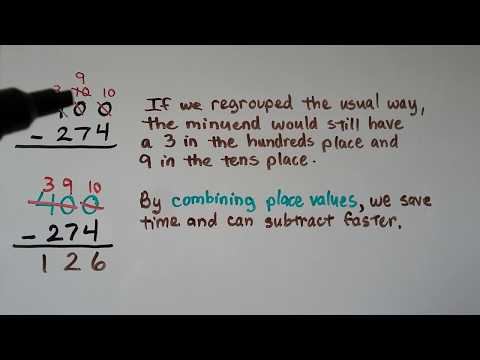 9
3 10 10
400
- 274
If we regrouped the usual way,
the minuend would still have
a 3 in the hundreds place and
9 in the tens place.
3 9 10
400
- 274
126
By combining place values, we save
time and can subtract faster.